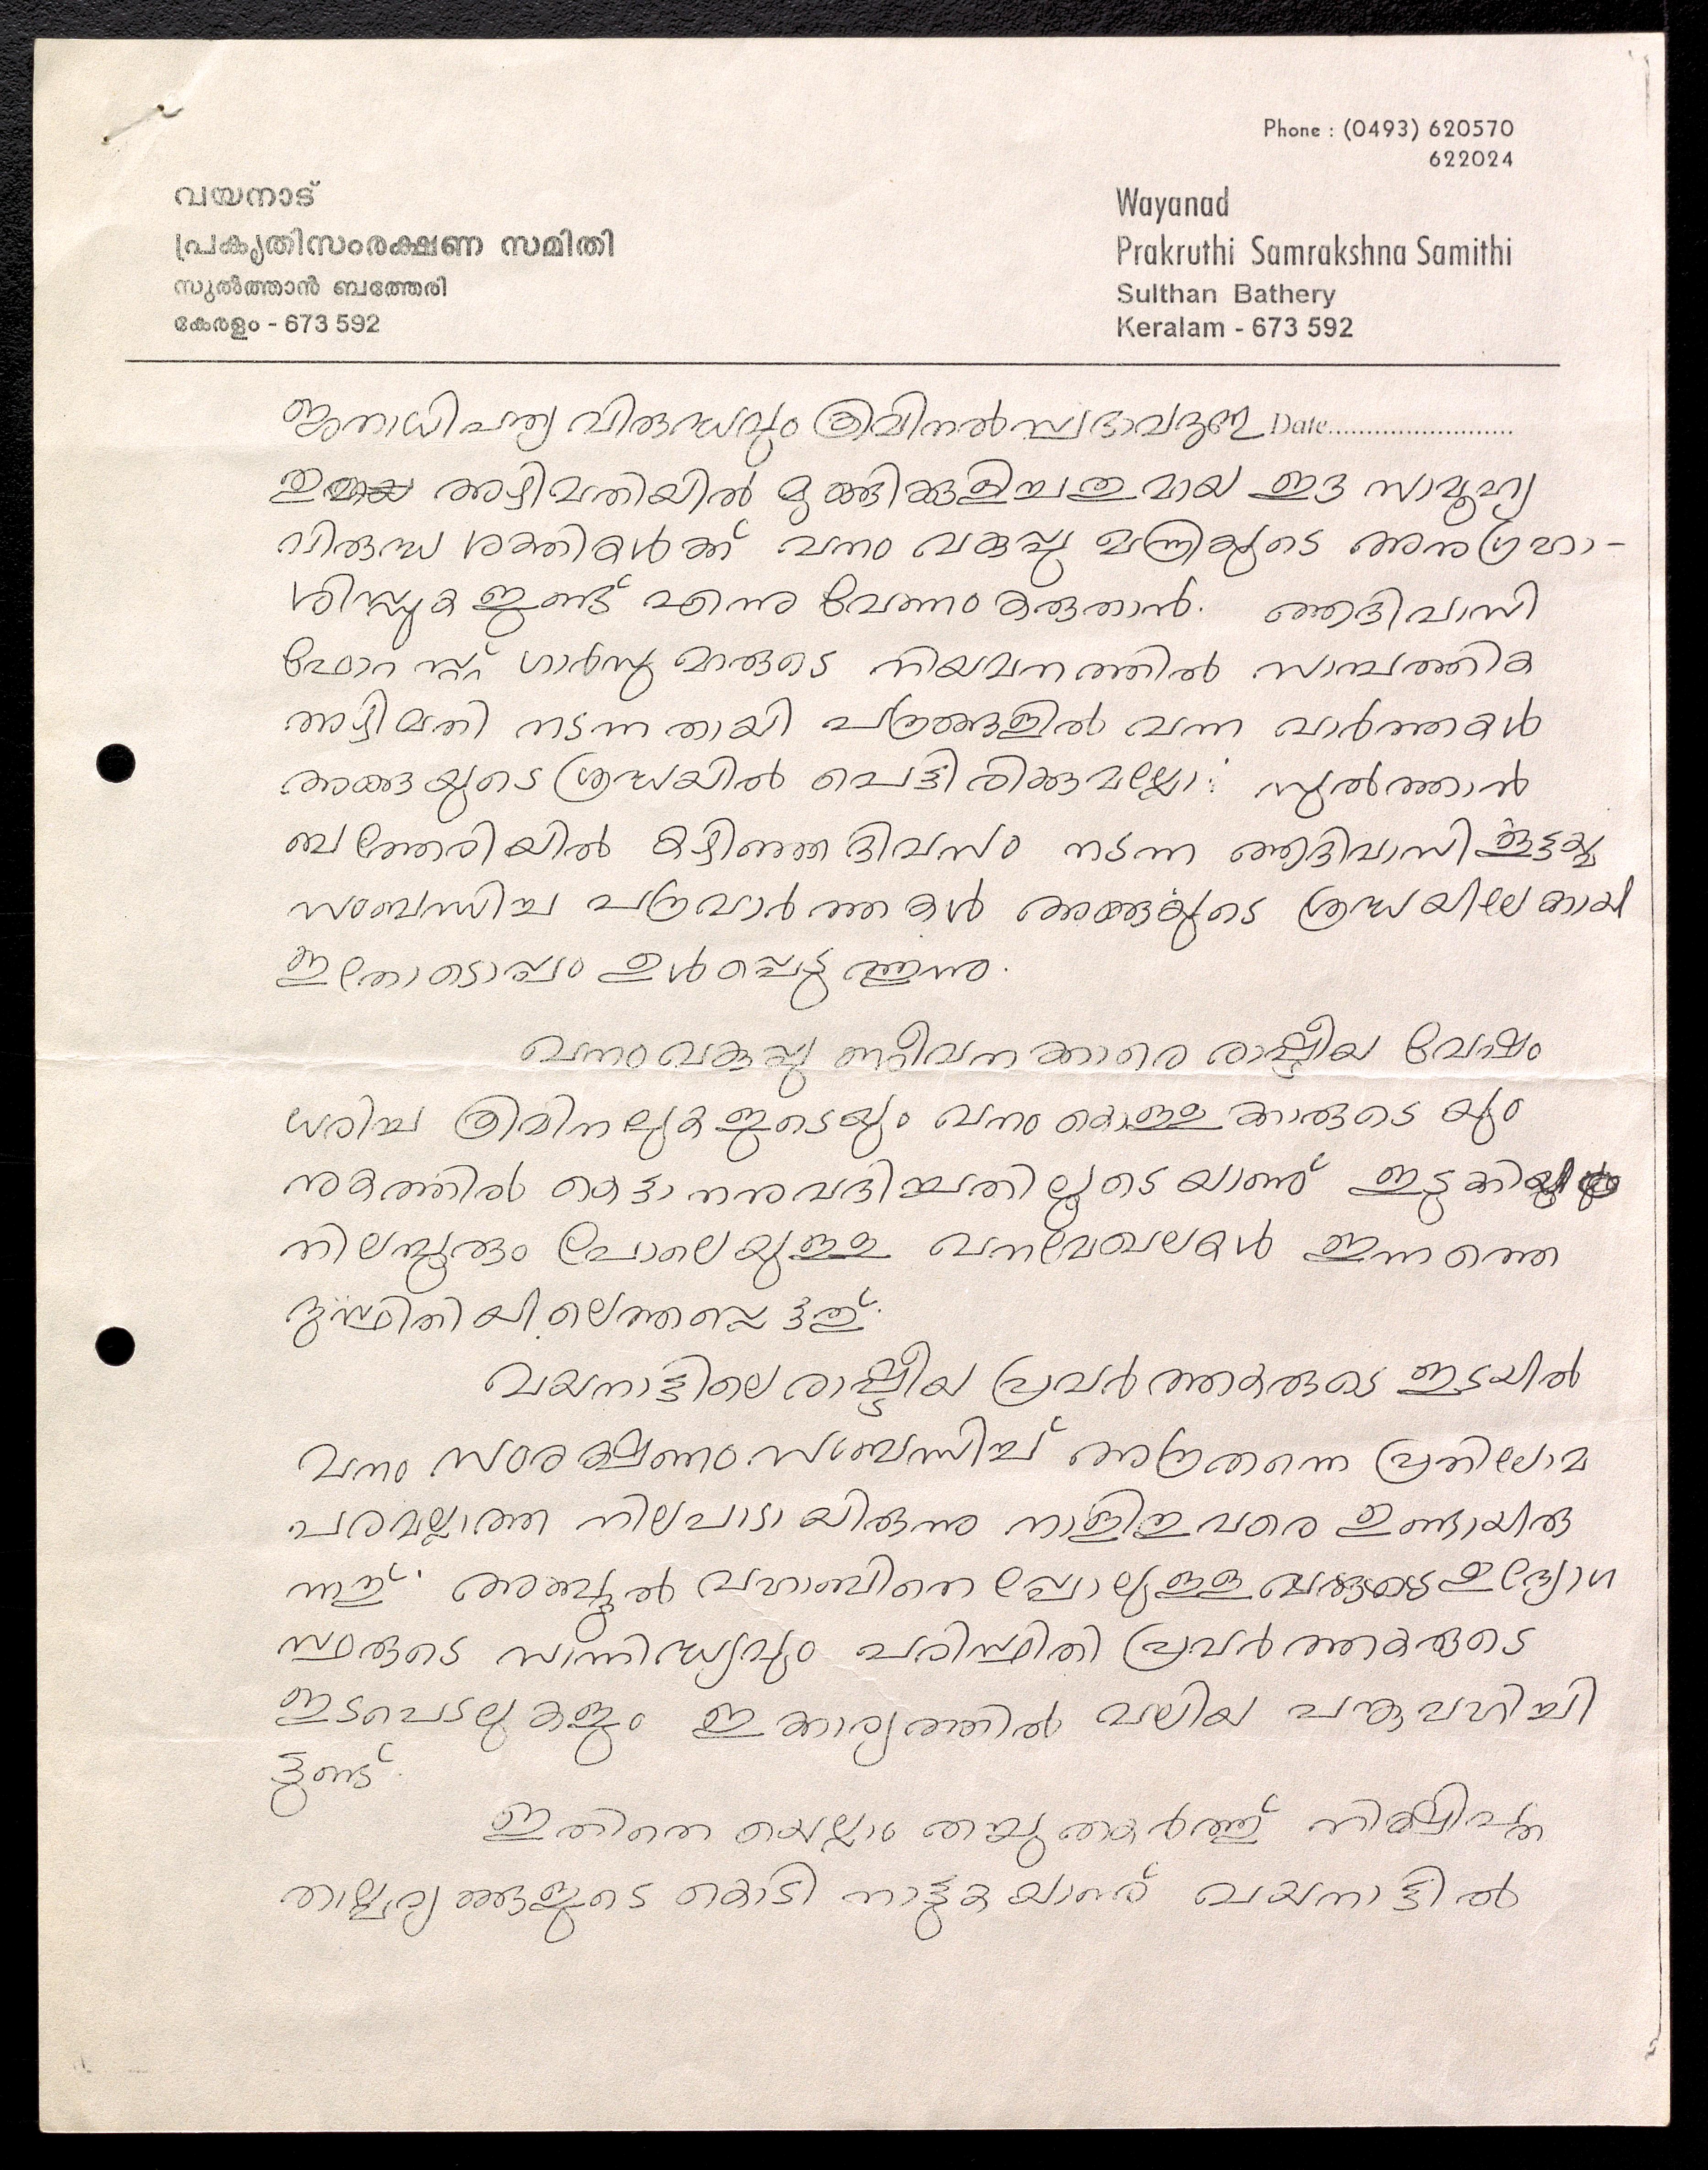 Phone : (0493) 620570
622024
വയനാട്
പ്രകൃതിസംരക്ഷണ സമിതി
സുൽത്താൻ ബത്തേരി
കേരളം - 673 592
Wayanad
Prakruthi Samrakshna Samithi
Sulthan Bathery
Keralam - 673 592
Date........................
ജനാധിപത്യ വിരുദ്ധവും ക്രിമിനൽ സ്വഭാവമുള്ള
അഴിമതിയിൽ മുങ്ങിക്കുളിച്ചതുമായ ഈ സാമൂഹ്യ
വിരുദ്ധ ശക്തികൾക്ക് വനം വകുപ്പു മന്ത്രിയുടെ അനുഗ്രഹാ-
ശിസ്സുകളുണ്ട് എന്നു വേണം കരുതാൻ. ആദിവാസി
ഫോറസ്റ്റ് ഗാർഡു മാരുടെ നിയമനത്തിൽ സാമ്പത്തിക
അഴിമതി നടന്നതായി പത്രങ്ങളിൽ വന്ന വാർത്തകൾ
അങ്ങയുടെ ശ്രദ്ധയിൽ പെട്ടിരിക്കുമല്ലോ: സുൽത്താൻ
ബത്തേരിയിൽ കഴിഞ്ഞ ദിവസം നടന്ന ആദിവാസി
സംബന്ധിച്ച പത്രവാർത്തകൾ അങ്ങയുടെ ശ്രദ്ധയിലേക്കായി
ഇതോടൊപ്പം ഉൾപ്പെടുത്തുന്നു.
വനംവകുപ്പു ജീവനക്കാരെ രാഷ്ട്രീയ വേഷം
ധരിച്ച ക്രിമിനലുകളുടെയും വനം കൊള്ളക്കാരുടെയും
നുകത്തിൽ കെട്ടാനനുവദിച്ചതിലൂടെയാണ് ഇടുക്കിയും
നിലമ്പൂരും പോലെയുള്ള വനമേഖലകൾ ഇന്നത്തെ
ദുസ്ഥിതിയിലെത്തപ്പെട്ടത്.
വയനാട്ടിലെ രാഷ്ട്രീയ പ്രവർത്തകരുടെ ഇടയിൽ
വനം സംരക്ഷണം സംബന്ധിച്ച് അത്രതന്നെ പ്രതിലോമ
പരമല്ലാത്ത നിലപാടായിരുന്നു നാളിതുവരെ ഉണ്ടായിരു
ന്നത്. അബ്ദുൽ വഹാബിനെ പ്പോലുള്ള ഉദ്യോഗ
സ്ഥരുടെ സാന്നിദ്ധ്യവും പരിസ്ഥിതി പ്രവർത്തകരുടെ
ഇടപെടലുകളും ഇക്കാര്യത്തിൽ വലിയ പങ്കുവഹിച്ചി
ട്ടുണ്ട്.
ഇതിനെ യെല്ലാം തച്ചുതകർത്ത് നിക്ഷിപ്ത
താല്പര്യങ്ങളുടെ കൊടി നാട്ടുകയാണ് വയനാട്ടിൽ